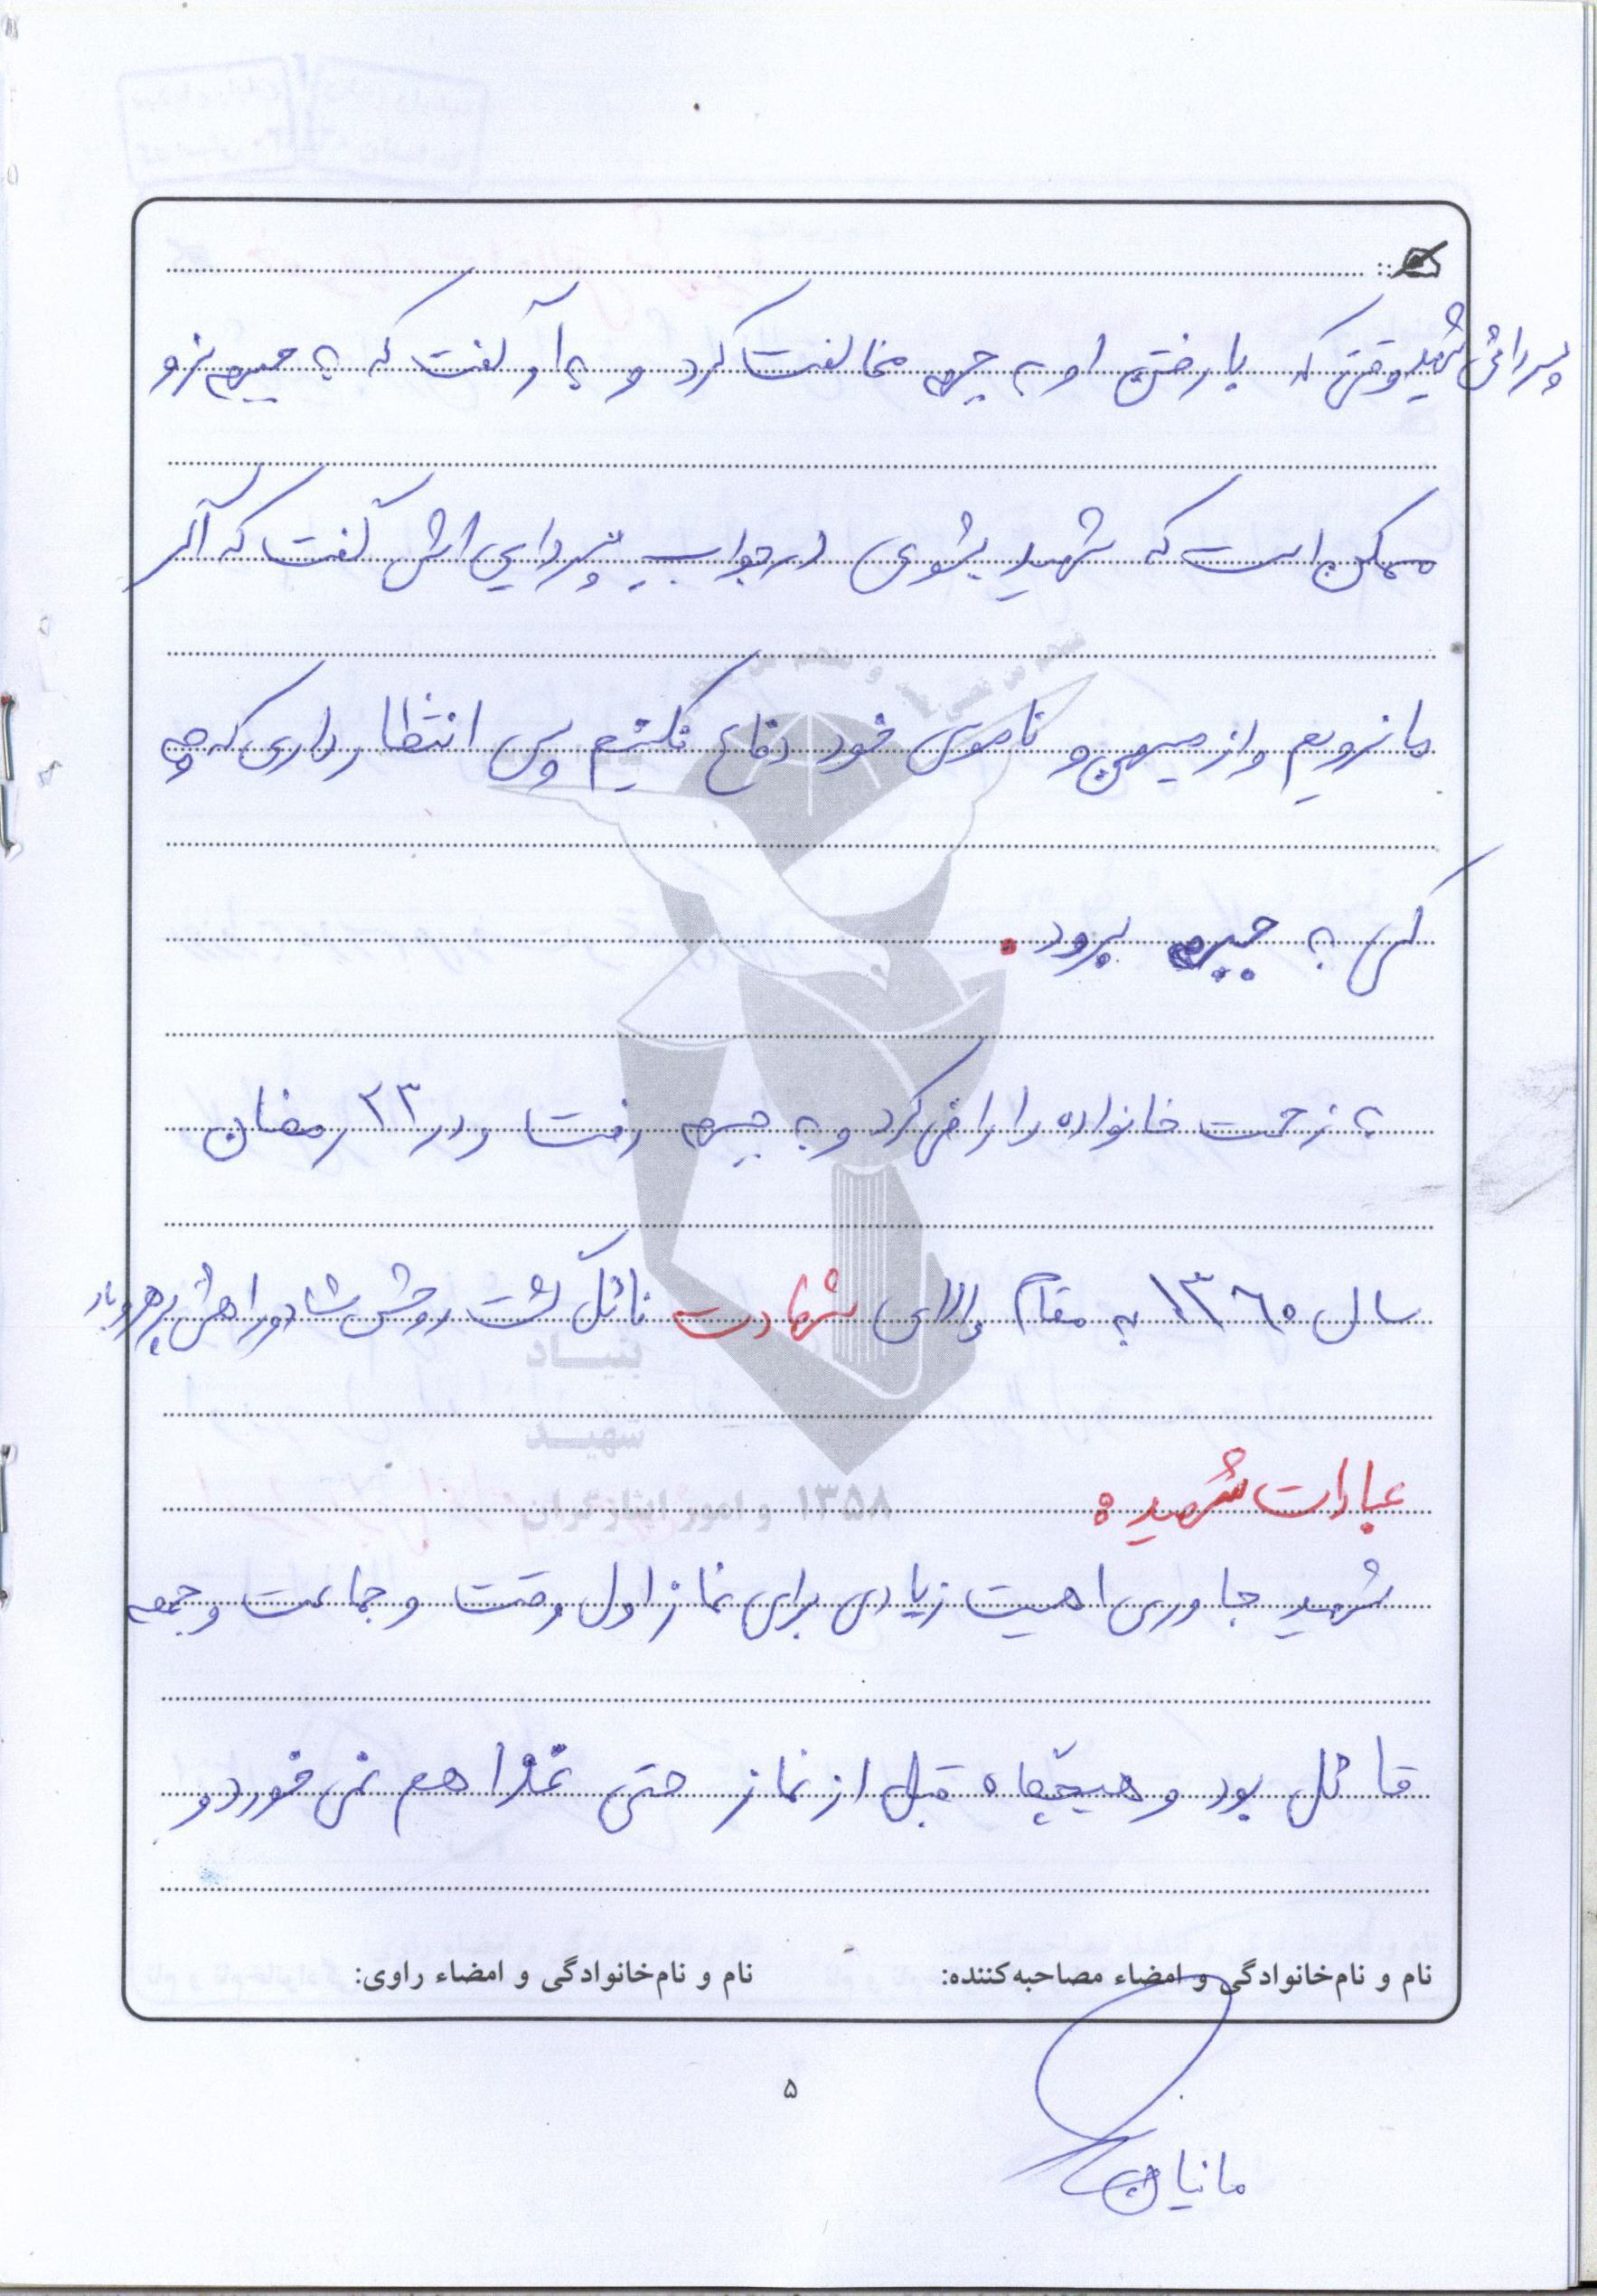 پسردائی شهید وقتی که با رفتن او به جبهه مخالفت کرد و به او گفت که به جبهه نرو
ممکن است که شهید بشوی در جواب پسر دایی اش گفت که اگر
ما نرویم و از میهن و ناموس خود دفاع نکنیم پس انتظار داری که چه
کسی به جبهه برود.
به زحمت خانواده را راضی کرد و به جبهه رفت و در ۲۳ رمضان
سال ۱۳۶۰ به مقام والای شهادت نائل گشت روحش شاد و راهش پر رهرو باد
بنیاد
شهید
عبادات شهید:
و امور ایثارگران ۱۳۵۸
شهید جاوری اهمیت زیادی برای نماز اول وقت و جماعت و جمعه
قائل بود و هیچگاه قبل از نماز حتی غذا هم نمی خورد و
نام و نام‌خانوادگی و امضاء مصاحبه‌کننده: نام و نام‌خانوادگی و امضاء راوی:
۵
مانیان